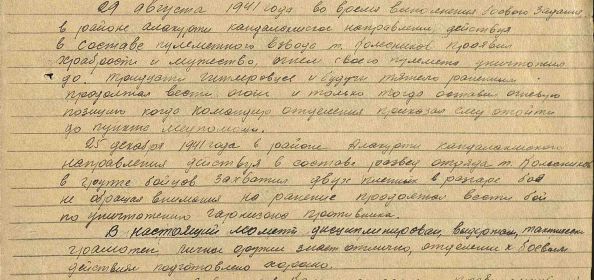 29 августа 1941 года во время выполнения боевого задания
в районе Алакурти кандалакшское направления, действуя
в составе пулеметного взвода т. Колесников проявил
храбрость и мужество, огнем своего пулемета уничтожил
до тридцати гитлеровцев и будучи тяжело раненым
продолжал вести огонь и только тогда оставил огневую
позицию когда командир отделения приказал ему отойти
до пункта медпомощи.
25 декабря 1941 года в районе Алакурти кандалакшского
направления действуя в составе развед отряда т. Колесников
в группе бойцов захватил двух пленных в разгаре боя
не обращая внимания на ранение продолжал вести бой
по уничтожению гарнизона противника.
В настоящий момент дисциплинирован, выдержан, тактически
грамотен личное оружие знает отлично, отделение к боевым
действиям подготовлено хорошо.